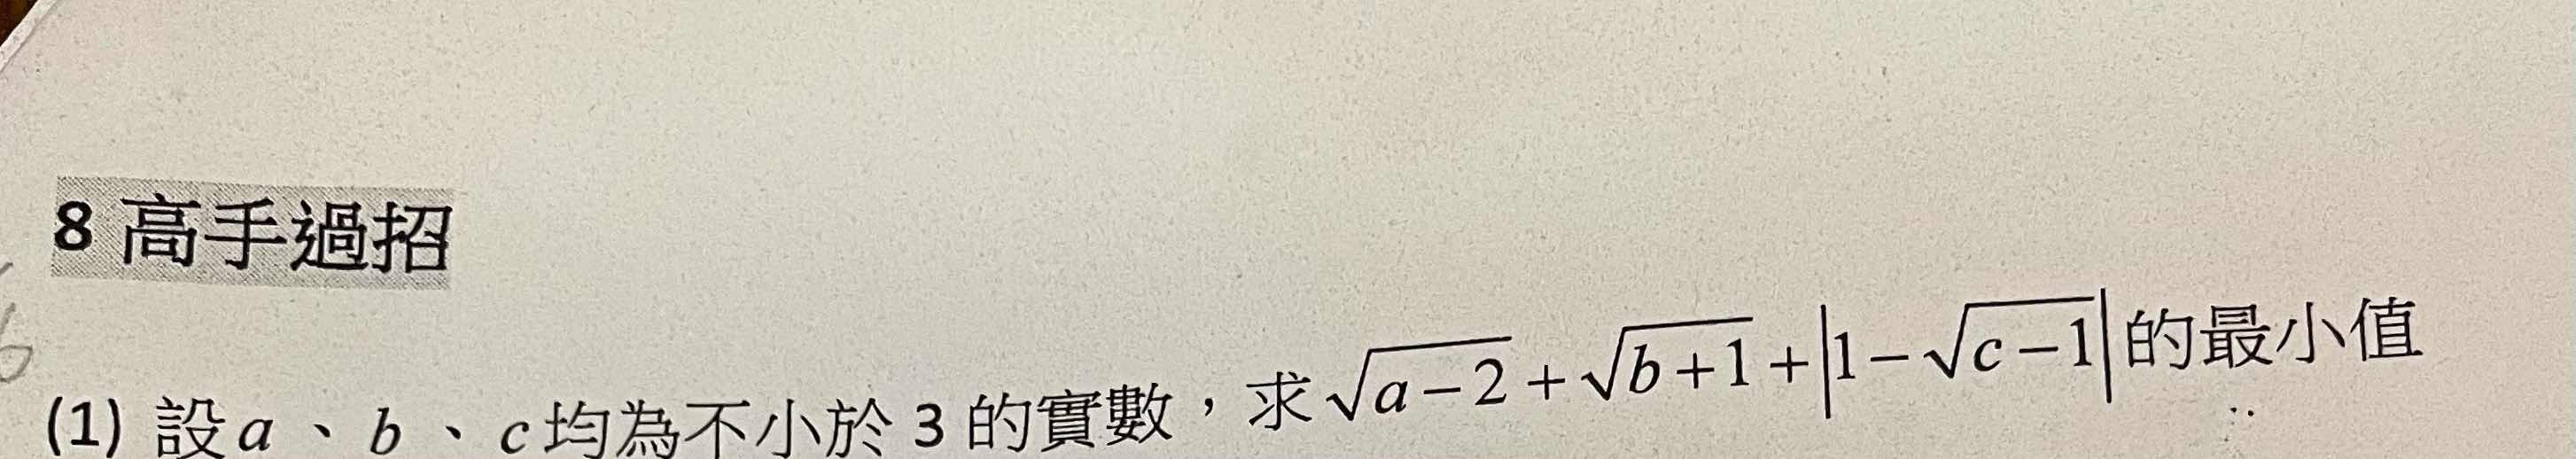 8 高手過招
(1) 設 a 、 b 、 c 均為不小於 3 的實數，求 √(a−2) + √(b+1) + |1−√(c−1)| 的最小值